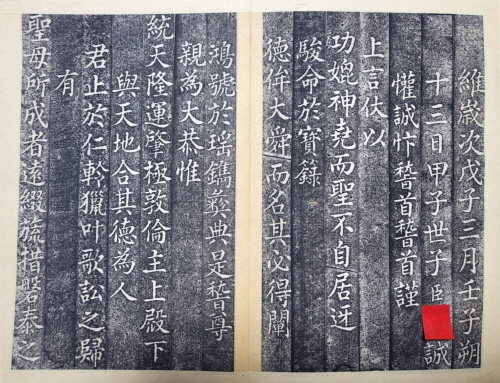 維歲次戊子三月壬子朔
十三日甲子世子臣誠
懽誠忭稽首稽首謹
上言伏以
功媲神堯而聖不自居迓
駿命於寶籙
德侔大舜而名其必得闡
鴻號於瑤鐫彝典是稽尊
親為大恭惟
統天隆運肇極敦倫主上殿下
與天地合其德為人
君止於仁軫獵叶歌訟之歸
有
聖母所成者遠綴旒措磐泰之